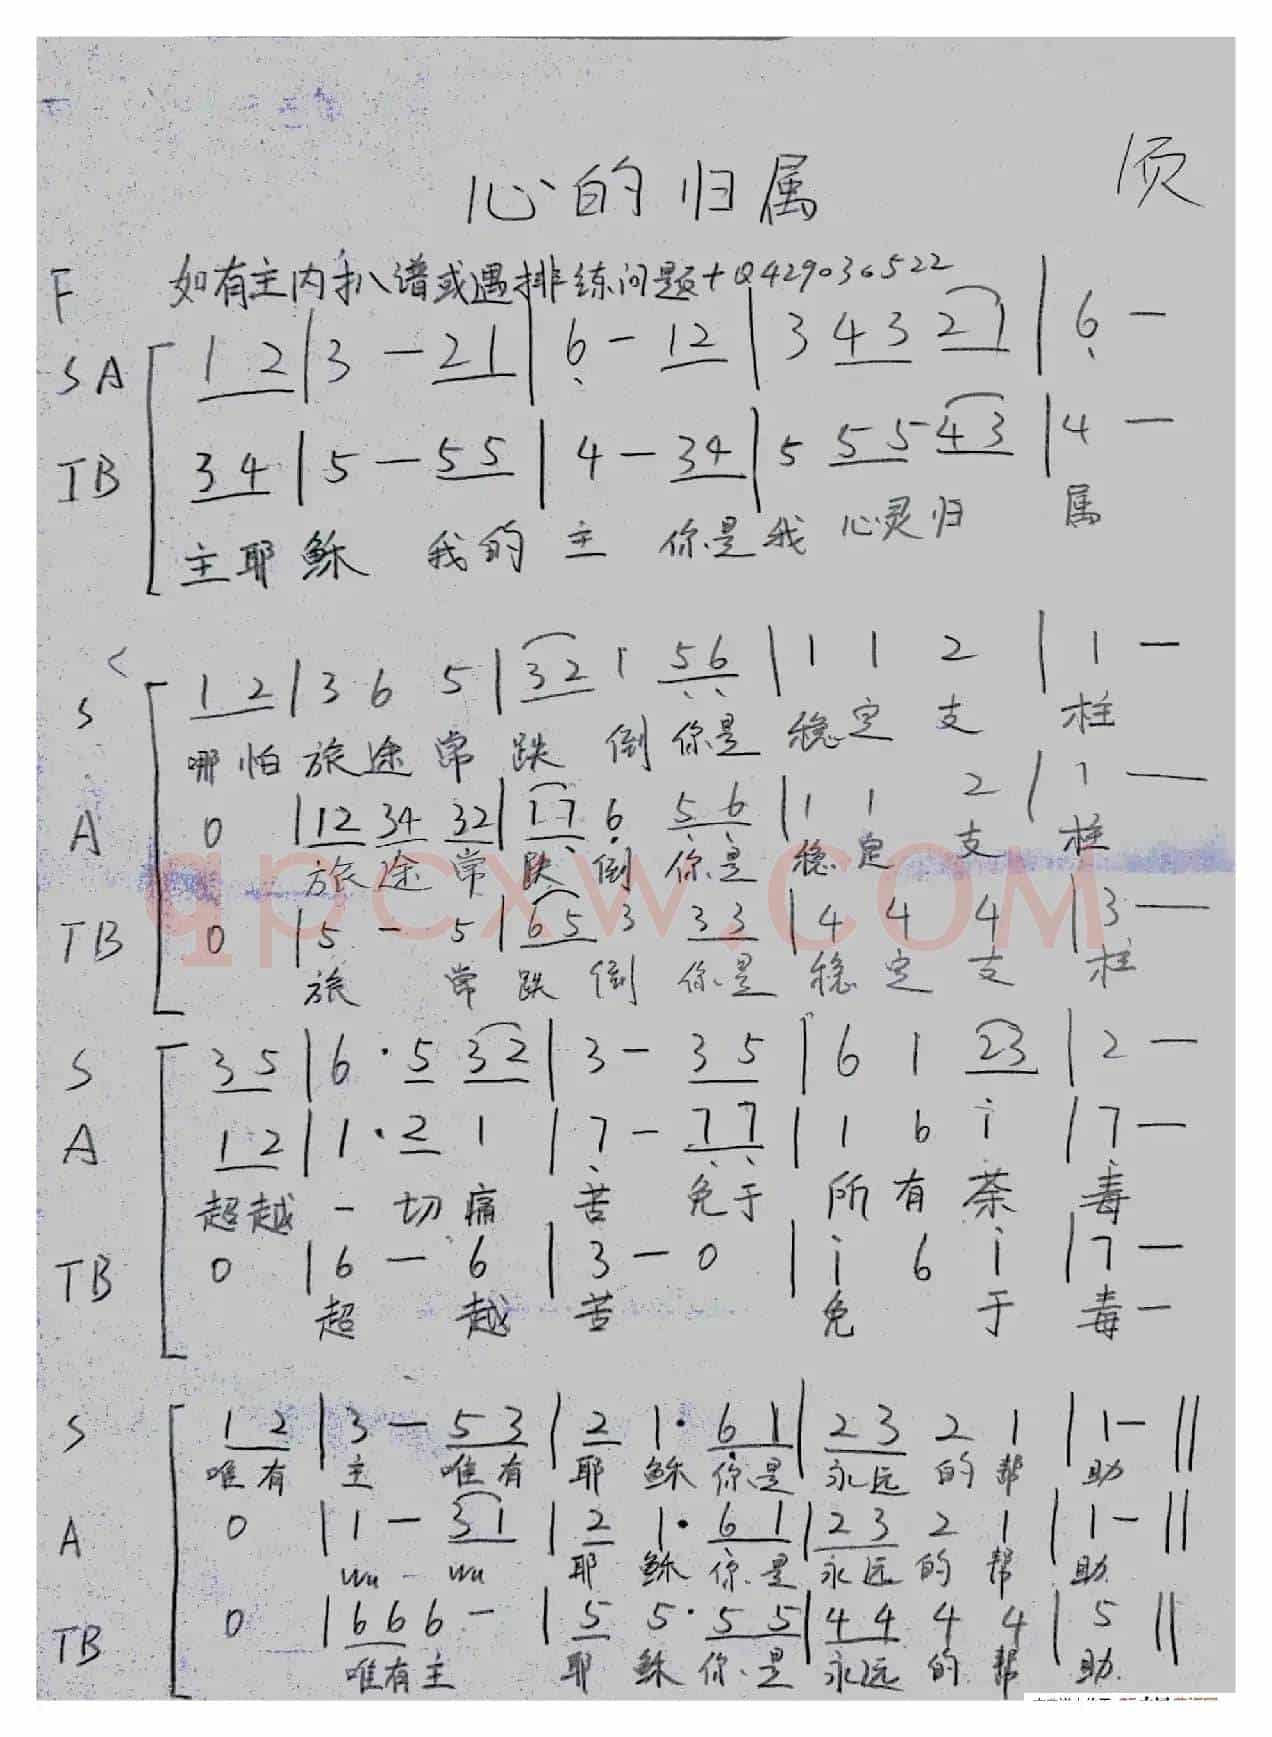 心的归属 1页
F 如有主内扒谱或遇排练问题+Q429036522
SA 1 2 | 3 - 2 1 | 6̣ - 1 2 | 3 4 3 2 1 | 6̣ -
TB 3 4 | 5 - 5 5 | 4 - 3 4 | 5 5 5 4 3 | 4 -
主耶稣 我的主 你是我 心灵归 属
S 1 2 | 3 6 5 | 3 2 1 5̣ 6̣ | 1 1 2 | 1 -
哪怕旅途常跌 倒 你是 稳定 支 柱
A 0 | 1 2 3 4 3 2 | 1 7̣ 6̣ 5̣ 6̣ | 1 1 2 | 1 -
旅途常跌 倒 你是 稳定 支 柱
TB 0 | 5 - 5 | 6 5 3 3 3 | 4 4 4 | 3 -
旅 常 跌 倒 你是 稳 定 支 柱
S 3 5 | 6 · 5 3 2 | 3 - 3 5 | 6 1 2 3 | 2 -
A 1 2 | 1 · 2 1 | 7̣ - 7̣ 7̣ | 1 6 i | 7 -
超越一切痛 苦 免于 所有荼 毒
TB 0 | 6 - 6 | 3 - 0 | i 6 i | 7 -
超 越 苦 免 于 毒 -
S 1 2 | 3 - 5 3 | 2 1 · 6̣ 1 | 2 3 2 1 | 1 - ||
唯有 主 唯有 耶 稣 你是 永远 的 帮 助
A 0 | 1 - 3 1 | 2 1 · 6̣ 1 | 2 3 2 1 | 1 - ||
wu wu 耶 稣 你是 永远 的 帮 助.
TB 0 | 6 6 6 - | 5 5 · 5 5 | 4 4 4 4 | 5 ||
唯有主 耶 稣 你是 永远 的 帮 助.
qpcxw.com